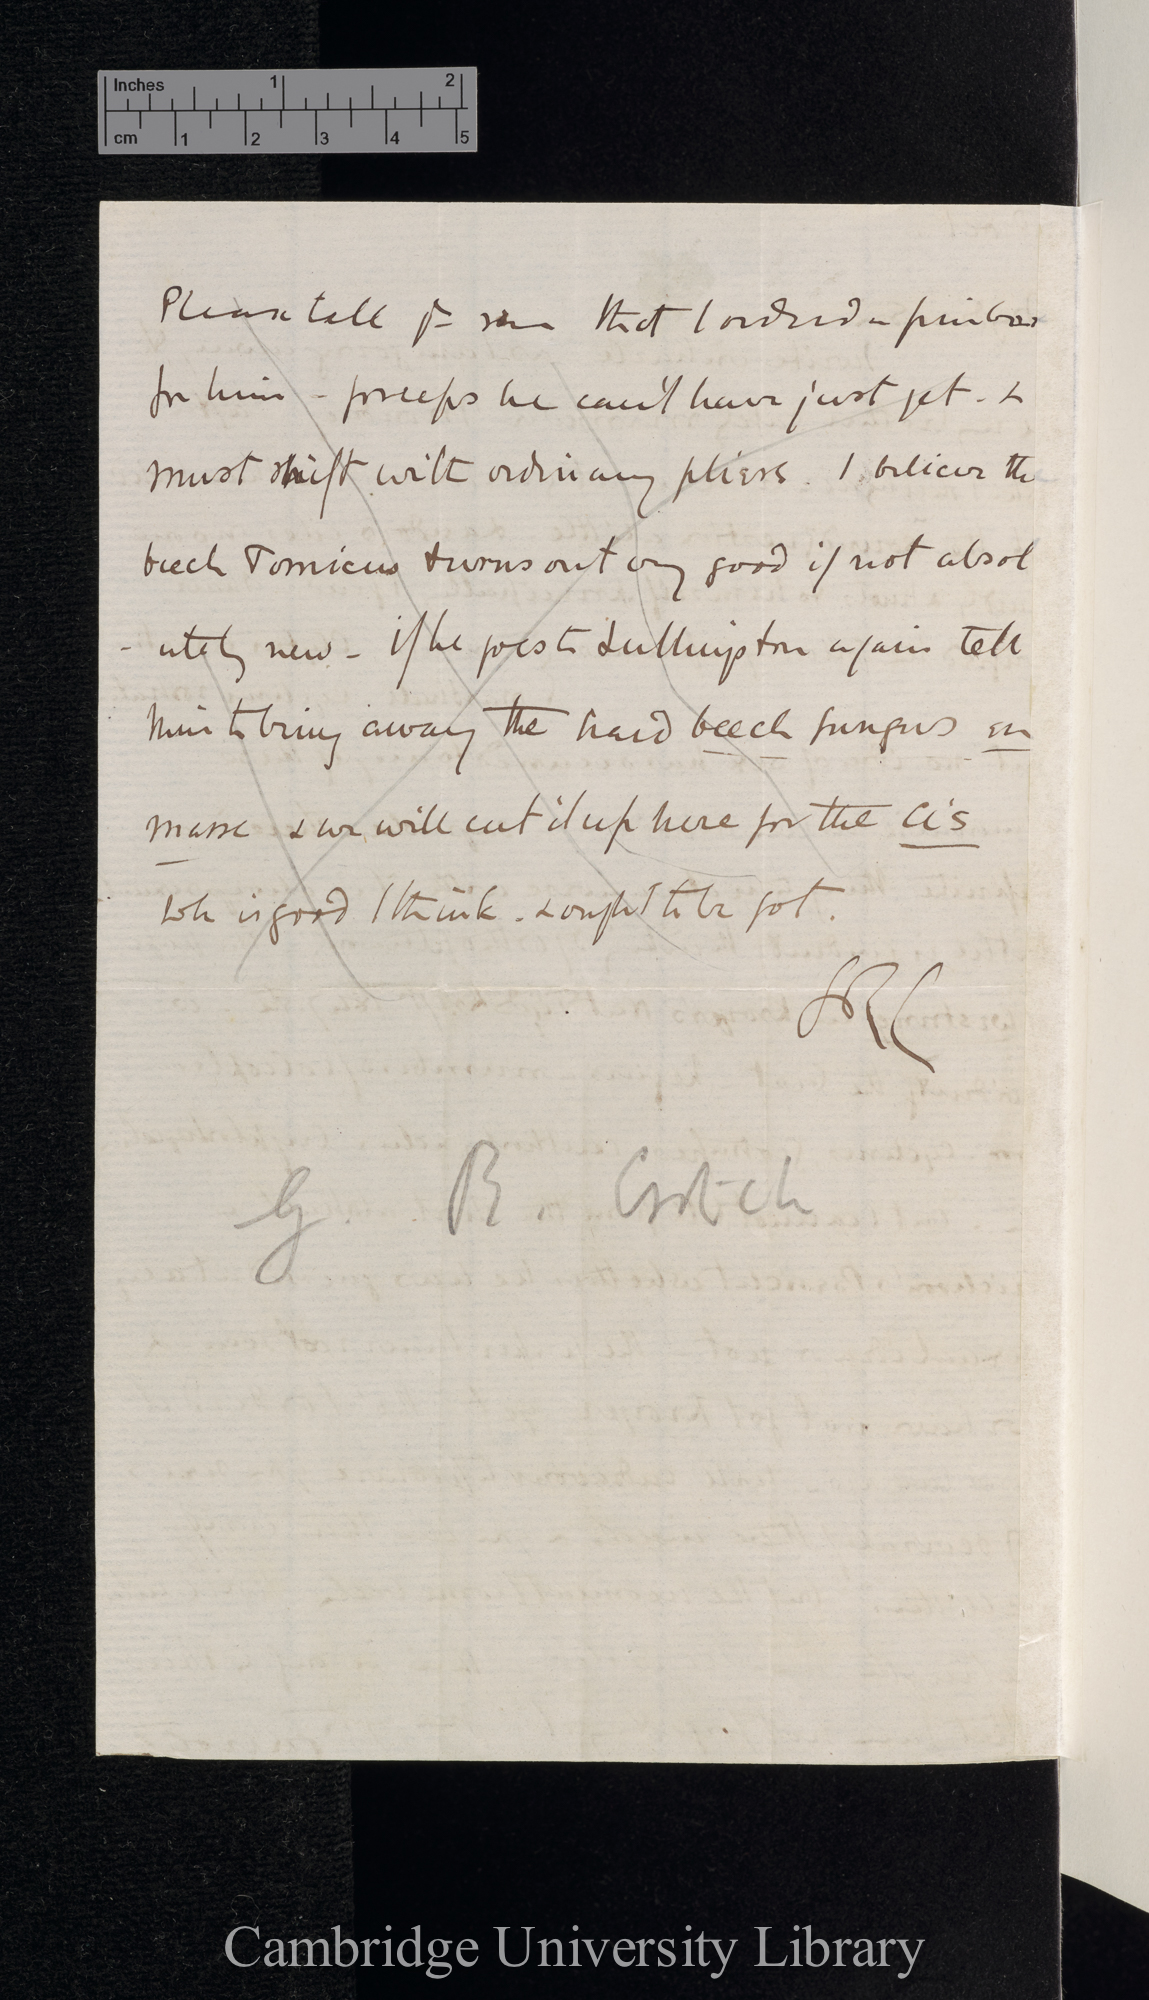 Inches 1 2
cm 1 2 3 4 5
Please tell yr son that I ordered a pinbox
for him - forceps he can't have just yet - &
must shift with ordinary pliers. I believe the
beech Tomicus turns out very good if not absol
- utely new - If he goes to Lullingston again tell
him to bring away the hard beech fungus en
masse & we will cut it up here for the Cis
wh is good I think - & ought to be got.
GRC
G. R. Crotch
Cambridge University Library